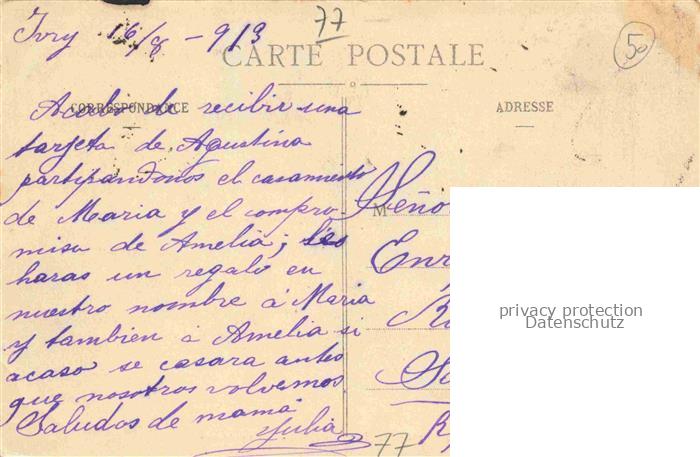 Ivry 16/8 - 913
77
50
CARTE POSTALE
CORRESPONDANCE
ADRESSE
Acabo de recibir una
tarjeta de Agustina
partipandonos el casamiento
de Maria y el compro-
miso de Amelia; les
haras un regalo en
nuestro nombre á Maria
y tambien á Amelia si
acaso se casara antes
que nosotros volvemos
Saludos de mamá
Julia
77
M
Seño
Enr
privacy protection
Datenschutz